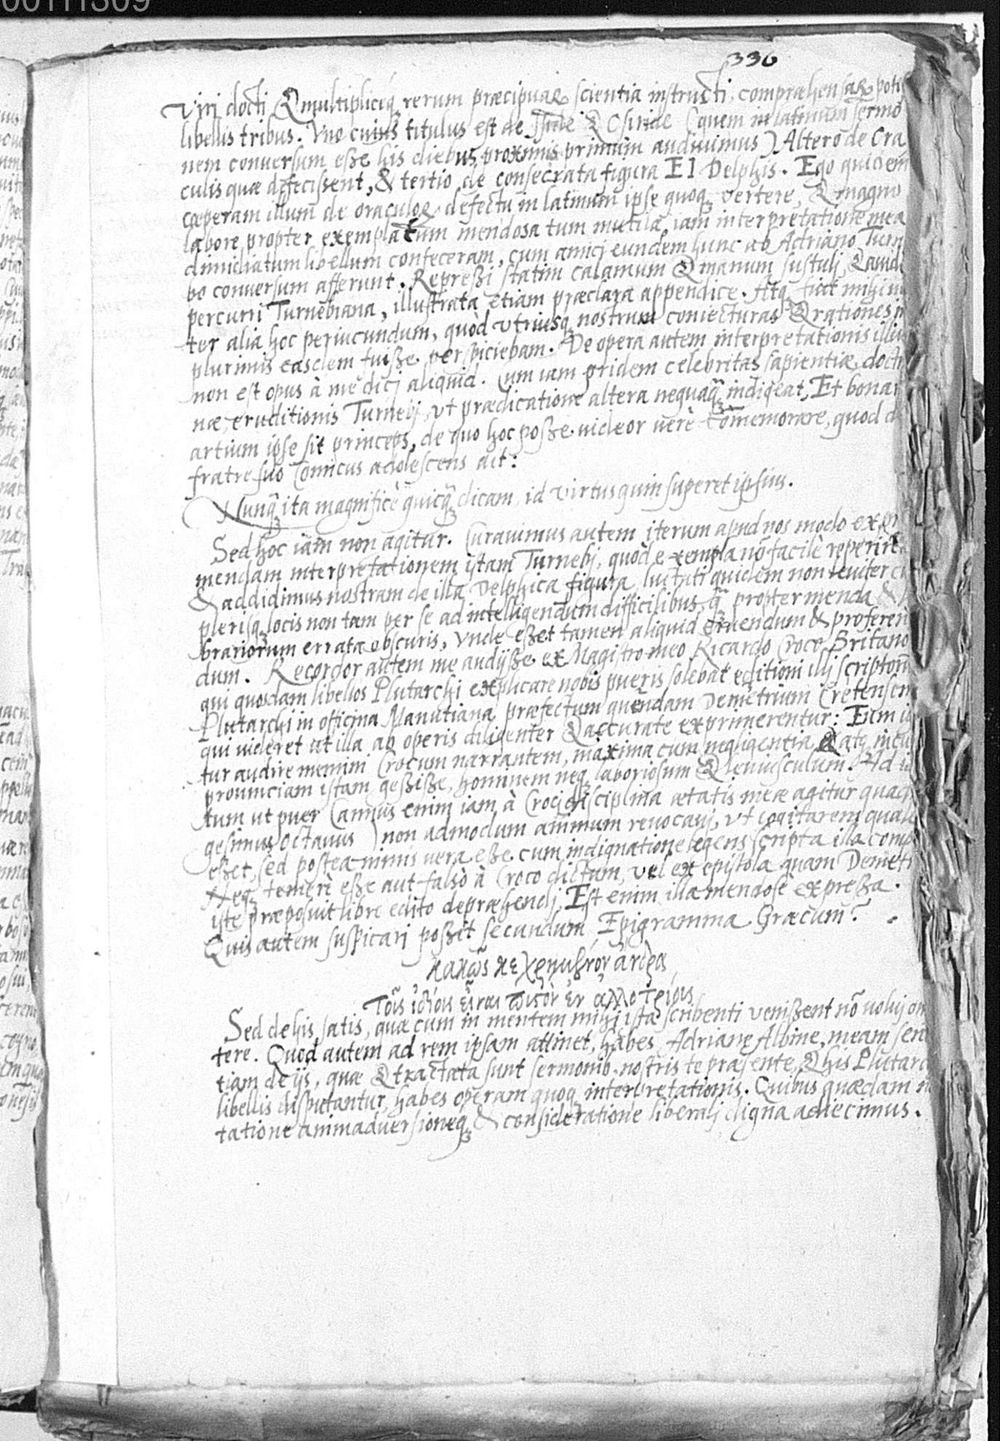 00111309
336
Viri docti, & multipliciq́ rerum præcipuar̃ scientia instructi, compræhensar̃ poti
libellis tribus. Vno cuius titulus est de Iside & Osiride (quem in latinum sermo
nem conversum esse his diebus proximis primum audivimus) Altero de Ora
culis quæ defecissent, & tertio de consecrata figura EI Delphis. Ego quidem
cœperam illum de oraculor̃ defectu in latinum ipse quoq́ vertere, & magno
labore propter exemplarium mendosa tum mutila, iam interpretatione mea
dimidiatum libellum confeceram, cum amici eundem hunc ab Adriano Turn
bo conversum afferunt. Repreßi statim calamum & manum sustuli, & avide
percurri Turnebiana, illustrata etiam præclara appendice. Atq́ fuit mihi in
ter alia hoc periucundum, quod utriusq́ nostrum coniecturas & rationes in
plurimis easdem fuiße perspiciebam. De opera autem interpretationis illiu
non est opus à me dicj aliquid. Cum iam pridem celebritas sapientiæ, doctr
næ eruditionis Turnebj, ut prædicatione altera nequaq̃ indigeat, Et bonar
artium ipse sit princeps, de quo hoc poße videor verè comemorare, quod d
fratre suo Comicus adolescens ait:
Nunq̃ ita magnificè quicq̃ dicam, id virtus quin superet ipsius.
Sed hoc iam non agitur. Curavimus autem iterum apud nos modo expri
mendam interpretationem istam Turnebj, quod exempla nõ facilè reperire
& addidimus nostram de illa Delphica figura, luituti quidem non leviter
plerisq́ locis non tam per se ad intelligendum difficilibus, q̃ propter menda &
brariorum errata obscuris, unde eßet tamen aliquid eruendum & proferen
dum. Recordor autem me audiiße ex Magistro meo Ricardo Croco Britano
qui quosdam libellos Plutarchi explicare nobis pueris solebat, editioni illi scriptoru
Plutarchi in officina Manutiana præfectum quendam Demetrium Cretensem
qui videret ut illa ab operis diligenter & accurate exprimerentur: Eum i
tur audire memini Crocum narrantem, maxima cum negligentia & atq́ incu
provinciam istam geßiße, hominem neq́ laboriosum & leviusculum. Ad id
tum ut puer (annus enim iam à Croci disciplina ætatis meæ agitur quadra
gesimus octavus) non admodum animum revocavj, ut cogitarem quale
eßet, sed postea minus vera eße cum indignatione legens scripta illa comp
Neq́ temerè eße aut falsò à Croco dictum, vel ex epistola quam Demetri
iste præposuit libro edito depræhendj. Est enim illa mendosè expreßa.
Quis autem suspicari poßit secundum Epigramma Græcum?
Τοῖς ἰδίοις εἶναι πιστὸν ἐν ἀλλοτρίοις
Sed de his satis, quæ cum in mentem mihi ista scribenti venißent nõ volui om
tere. Quod autem ad rem ipsam attinet, habes Adriane Albine, meam sen
tiam de ijs, quæ & tractata sunt sermonib. nostris te præsente, & his Plutarc
libellis disputantur, habes operam quoq́ interpretationis. Quibus quædam n
tatione animadversioneq́ & consideratione liberalj digna adiecimus.